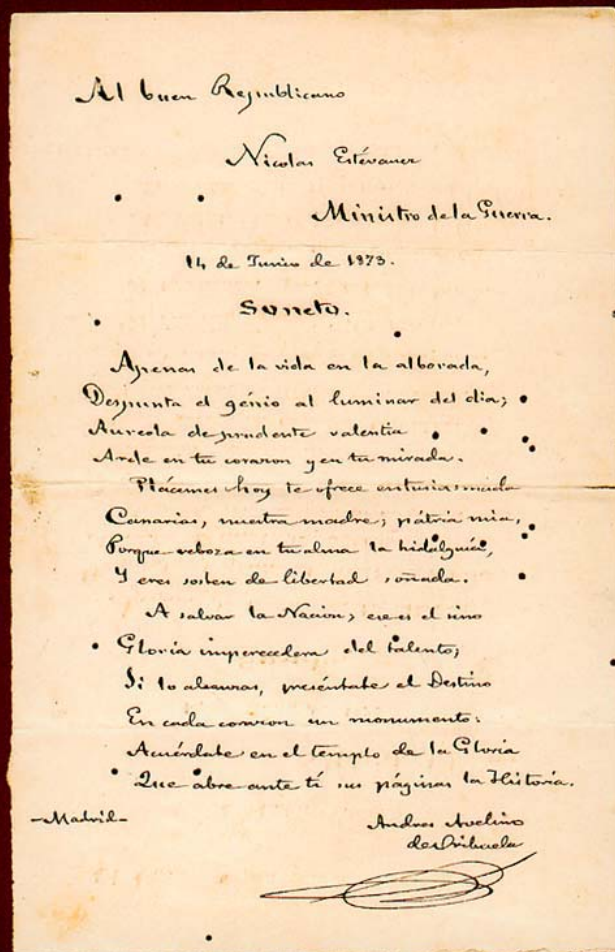 Al buen Republicano
Nicolas Estévanez
Ministro de la Guerra.
14 de Junio de 1873.
Soneto.
Apenas de la vida en la alborada,
Despunta el génio al luminar del dia;
Aureola de prudente valentia
Arde en tu corazon y en tu mirada.
Plácemes hoy te ofrece entusiasmada
Canarias, nuestra madre; pátria mia,
Porque reboza en tu alma la hidalguia,
Y eres sosten de libertad soñada.
A salvar la Nacion; ese es el sino
Gloria imperecedera del talento;
Si lo alcanzas, preséntate el Destino
En cada corazon un monumento:
Acuérdate en el templo de la Gloria
Que abre ante tí sus páginas la Historia.
-Madrid-
Andres Avelino
de Orihuela